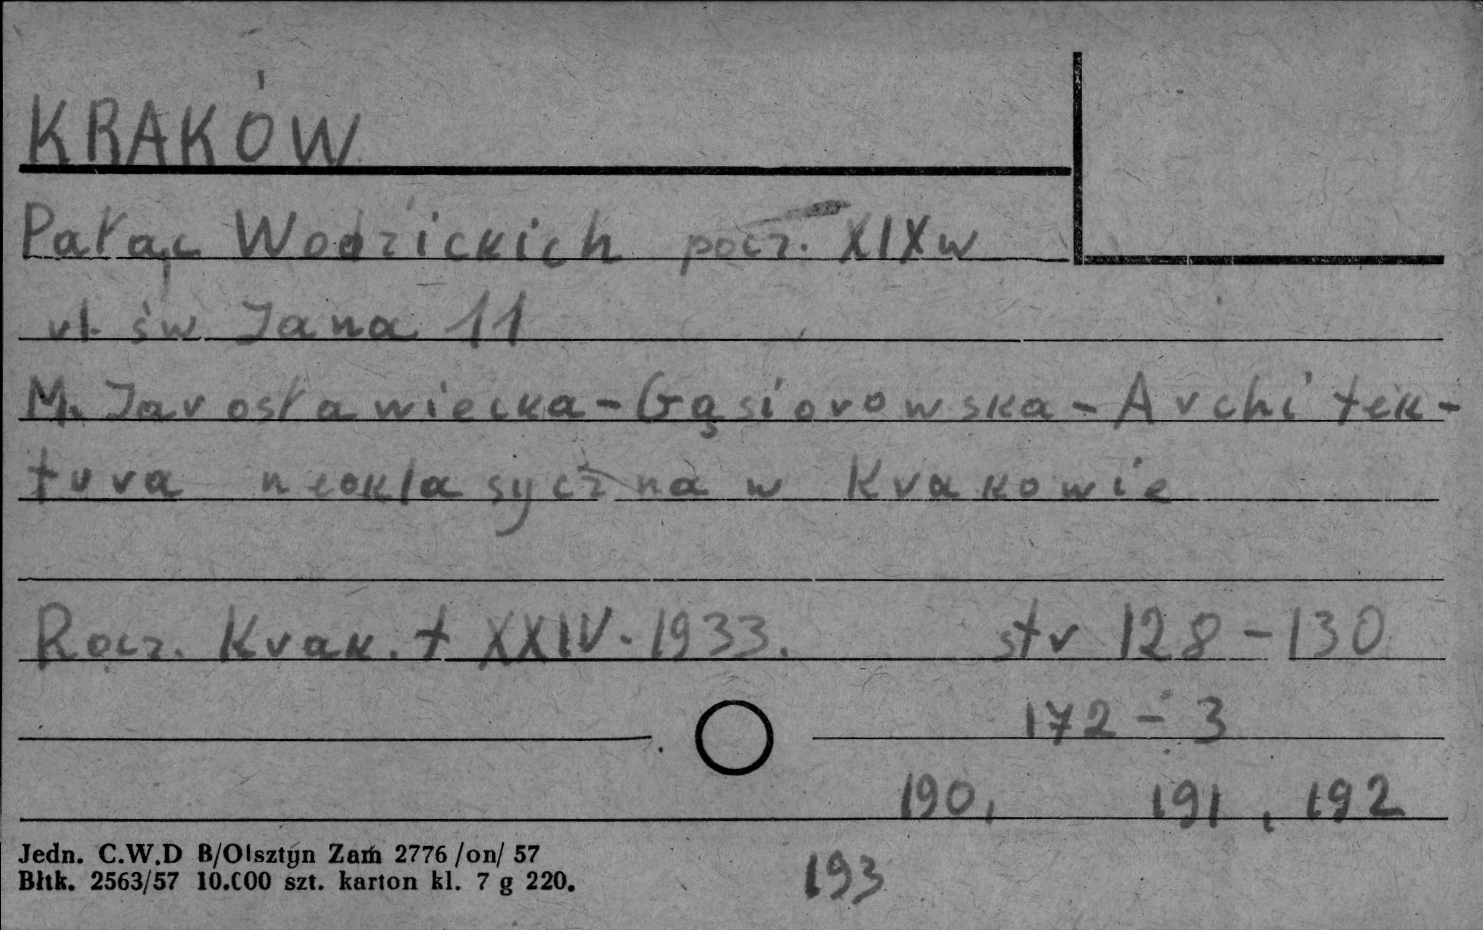 KRAKÓW
Pałac Wodzickich pocz. XIX w
ul. św. Jana 11
M. Jarosławiecka-Gąsiorowska - Architek-
tura neoklasyczna w Krakowie
Rocz. Krak. t XXIV. 1933. str 128-130
172-3
190, 191, 192
193
Jedn. C.W.D B/Olsztyn Zam 2776 /on/ 57
Bltk. 2563/57 10.000 szt. karton kl. 7 g 220.